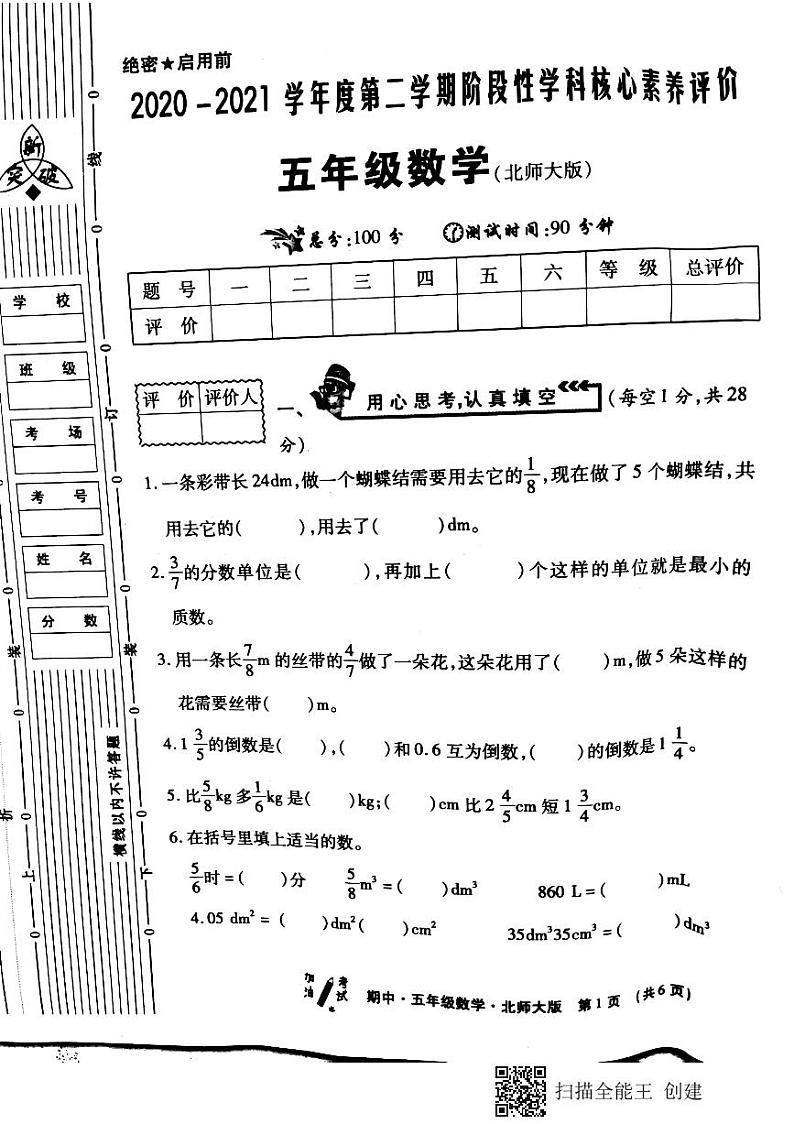 绝密★启用前
2020-2021 学年度第二学期阶段性学科核心素养评价
五年级数学(北师大版)
总分:100 分 测试时间:90 分钟
题 号 一 二 三 四 五 六 等 级 总评价
评 价
评 价 评价人
一、用心思考,认真填空(每空1分,共28
分)
1.一条彩带长24dm,做一个蝴蝶结需要用去它的1/8,现在做了5个蝴蝶结,共
用去它的( ),用去了( )dm。
2.3/7的分数单位是( ),再加上( )个这样的单位就是最小的
质数。
3.用一条长7/8m的丝带的4/7做了一朵花,这朵花用了( )m,做5朵这样的
花需要丝带( )m。
4.1 3/5的倒数是( ),( )和0.6互为倒数,( )的倒数是1 1/4。
5.比5/8kg多1/6kg是( )kg;( )cm比2 4/5cm短1 3/4cm。
6.在括号里填上适当的数。
5/6时=( )分 5/8m³=( )dm³ 860 L=( )mL
4.05 dm²=( )dm²( )cm² 35dm³35cm³=( )dm³
加油 考试 期中·五年级数学·北师大版 第1页 (共6页)
新
突 破
学 校
班 级
考 场
考 号
姓 名
分 数
线
订
装
装
横线以内不许答题
折
上
下
扫描全能王 创建